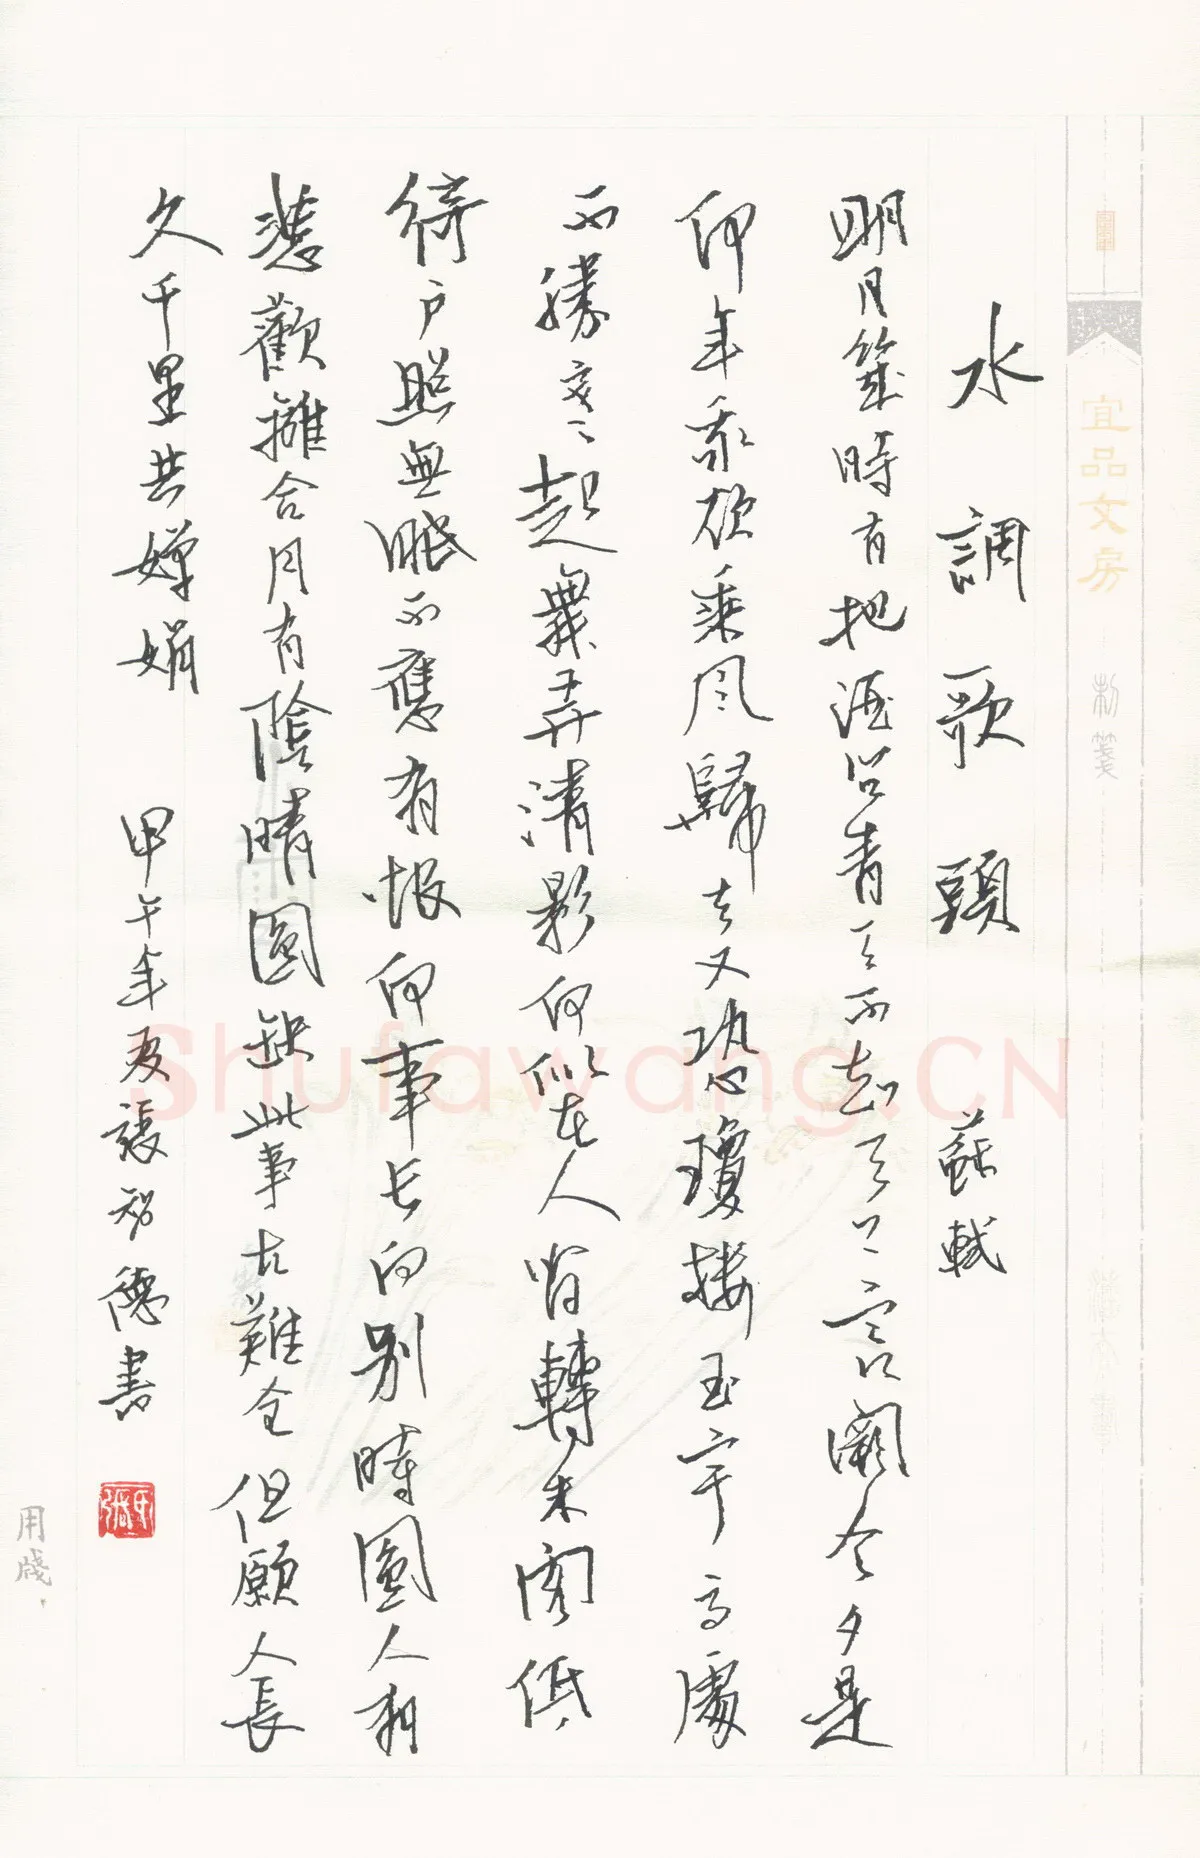 宜品文房 制箋
水調歌頭 蘇軾
明月幾時有把酒問青天不知天上宮闕今夕是
何年我欲乘風歸去又恐瓊樓玉宇高處
不勝寒起舞弄清影何似在人間轉朱閣低
綺户照無眠不應有恨何事长向别時圓人有
悲歡離合月有陰晴圓缺此事古難全但願人長
久千里共嬋娟 甲午年夏張智德書
用牋
Shufawang.CN